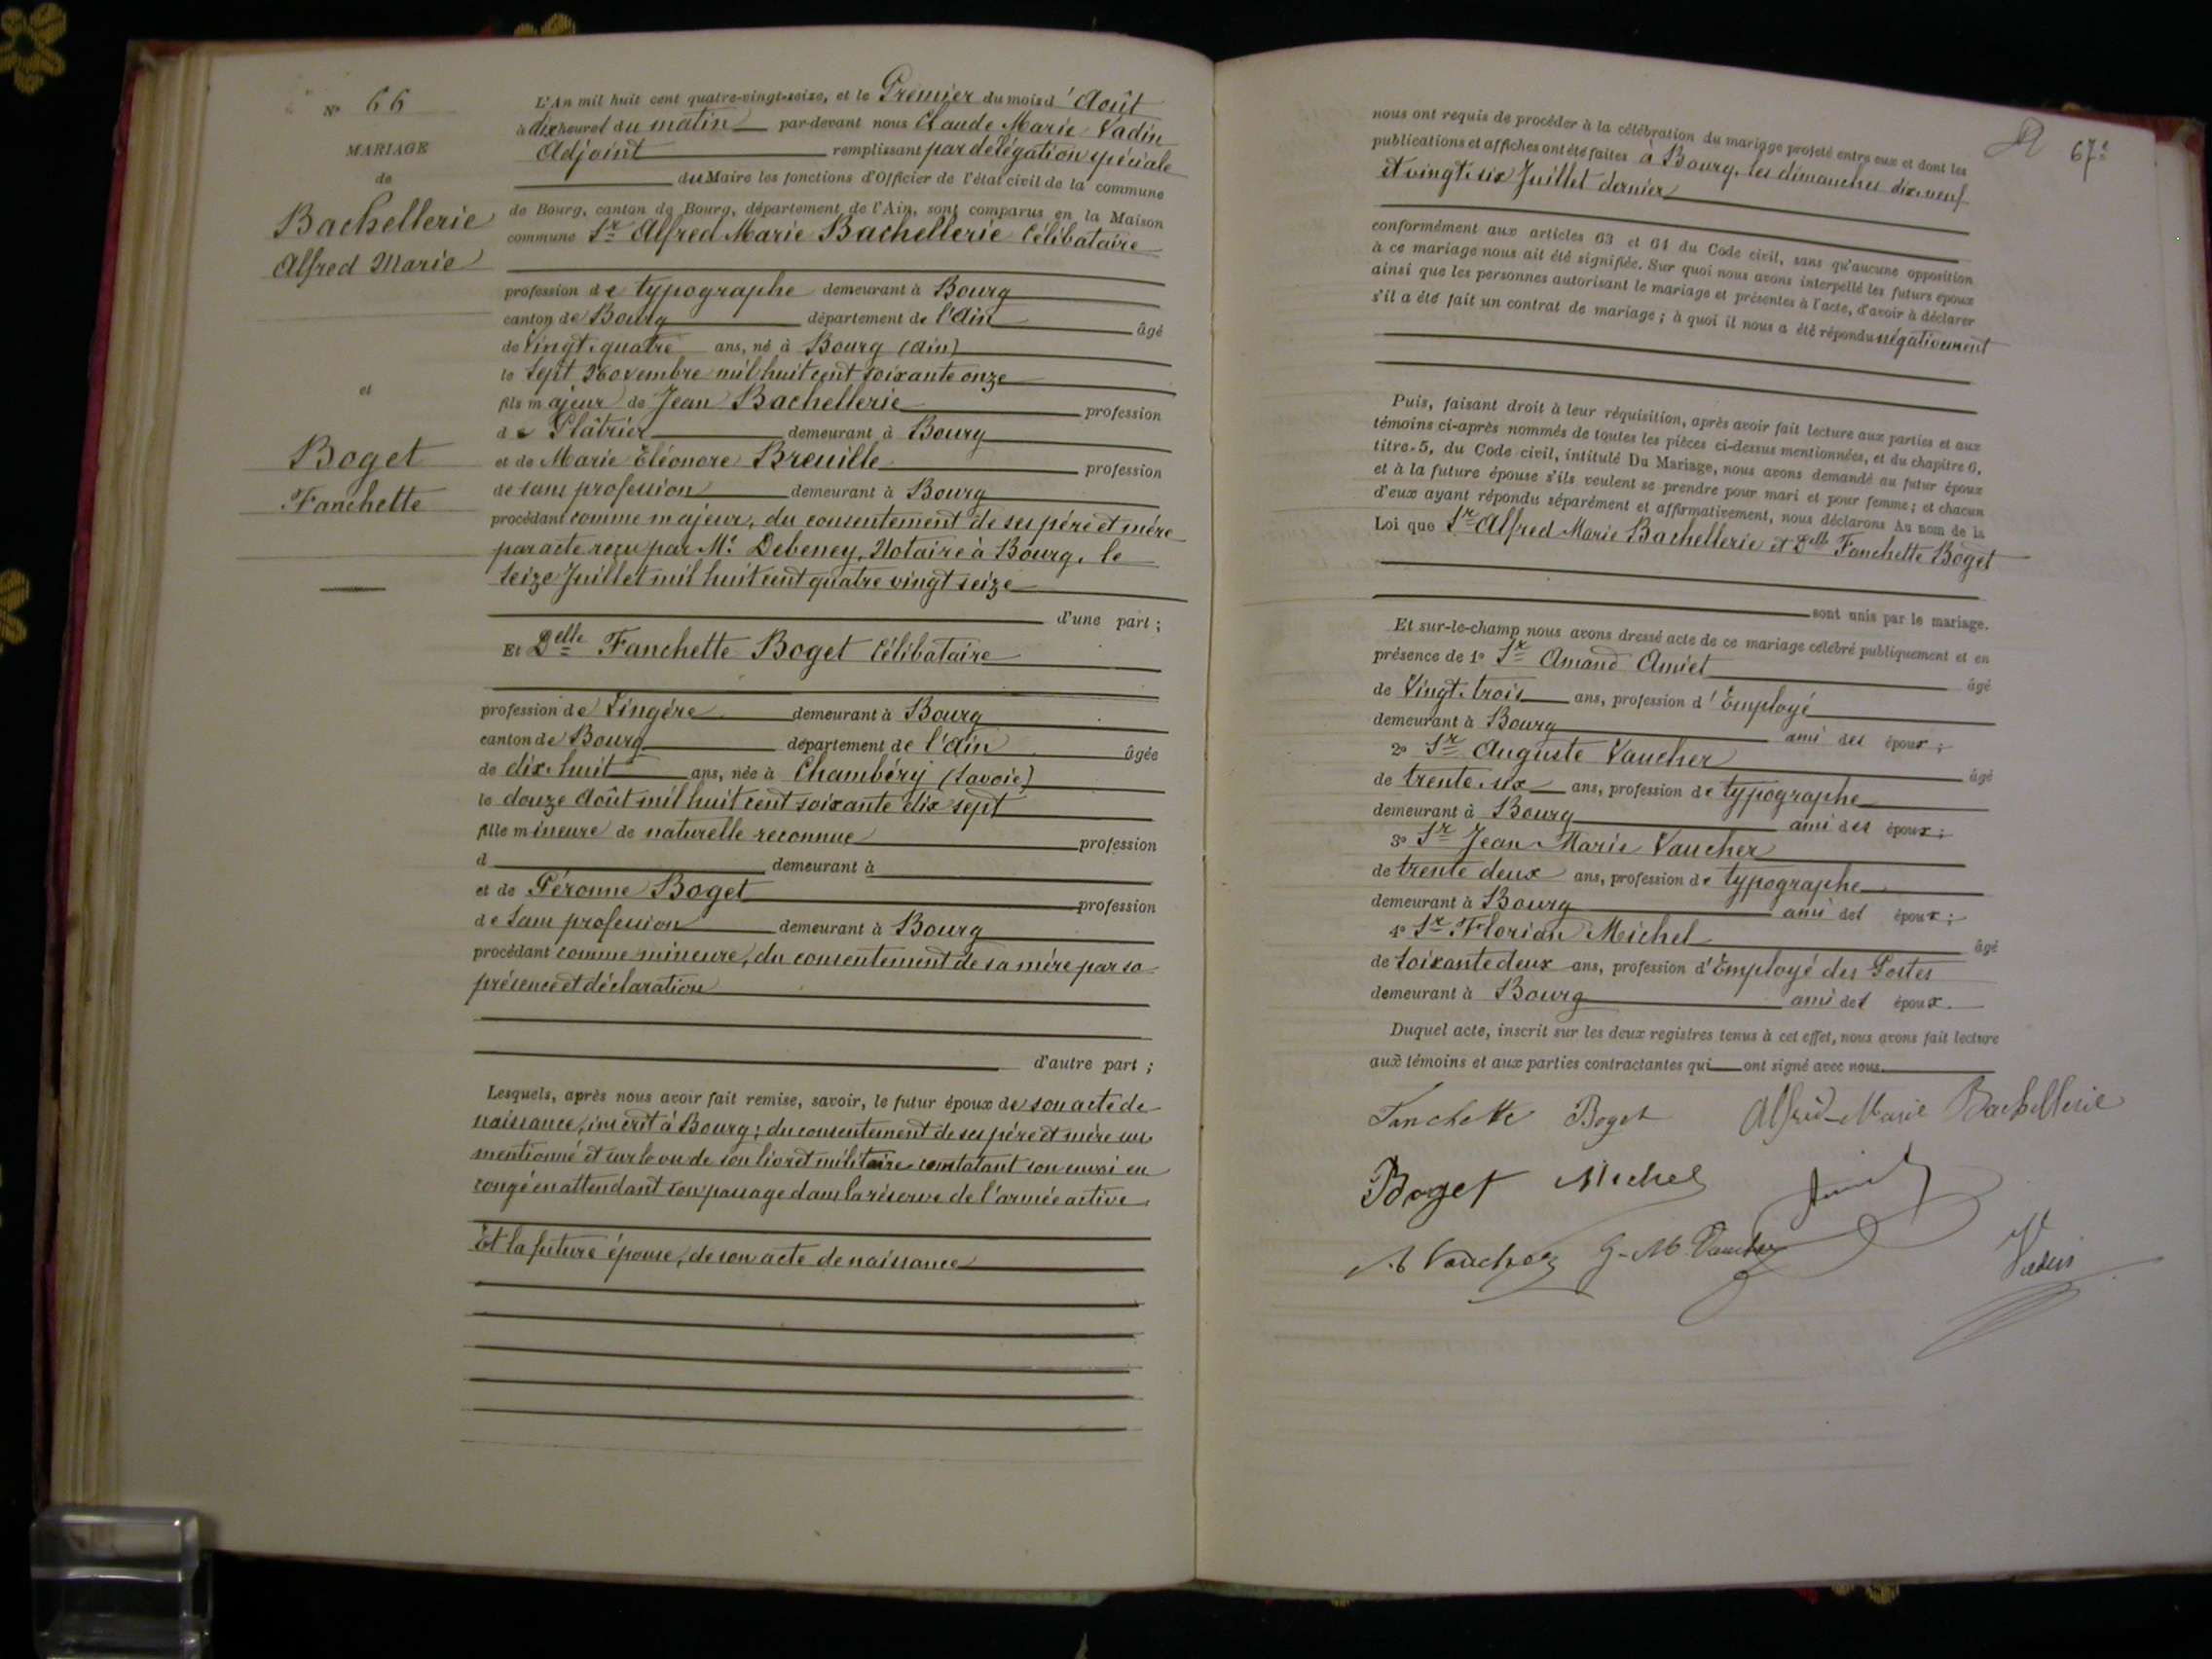 N° 66
MARIAGE
de
Bachellerie
Alfred Marie
et
Boget
Fanchette
L'An mil huit cent quatre-vingt-seize, et le Premier du mois d'Août
à dix heures du matin par-devant nous Claude Marie Vadin
Adjoint remplissant par délégation spéciale
du Maire les fonctions d'Officier de l'état civil de la commune
de Bourg, canton de Bourg, département de l'Ain, sont comparus en la Maison
commune Sr Alfred Marie Bachellerie Célibataire
profession de typographe demeurant à Bourg
canton de Bourg département de l'Ain âgé
de Vingt-quatre ans, né à Bourg (Ain)
le sept Novembre mil huit cent soixante onze
fils majeur de Jean Bachellerie profession
de Plâtrier demeurant à Bourg
et de Marie Eléonore Breuille profession
de sans profession demeurant à Bourg
procédant comme majeur, du consentement de ses père et mère
par acte reçu par Me Debeney, Notaire à Bourg, le
seize Juillet mil huit cent quatre vingt seize
d'une part ;
Et Delle Fanchette Boget Célibataire
profession de Lingère demeurant à Bourg
canton de Bourg département de l'Ain âgée
de dix-huit ans, née à Chambéry (Savoie)
le douze Août mil huit cent soixante dix sept
fille mineure de naturelle reconnue profession
d demeurant à
et de Péronne Boget profession
de sans profession demeurant à Bourg
procédant comme mineure, du consentement de sa mère par sa
présence et déclaration
d'autre part ;
Lesquels, après nous avoir fait remise, savoir, le futur époux de son acte de
naissance, inscrit à Bourg ; du consentement de ses père et mère sus
mentionné et sur le vu de son livret militaire constatant son envoi en
congé en attendant son passage dans la réserve de l'armée active
Et la future épouse, de son acte de naissance
67e
nous ont requis de procéder à la célébration du mariage projeté entre eux et dont les
publications et affiches ont été faites à Bourg, les dimanches dix-neuf
et vingt-six Juillet dernier
conformément aux articles 63 et 64 du Code civil, sans qu'aucune opposition
à ce mariage nous ait été signifiée. Sur quoi nous avons interpellé les futurs époux
ainsi que les personnes autorisant le mariage et présentes à l'acte, d'avoir à déclarer
s'il a été fait un contrat de mariage ; à quoi il nous a été répondu négativement
Puis, faisant droit à leur réquisition, après avoir fait lecture aux parties et aux
témoins ci-après nommés de toutes les pièces ci-dessus mentionnées, et du chapitre 6,
titre 5, du Code civil, intitulé Du Mariage, nous avons demandé au futur époux
et à la future épouse s'ils veulent se prendre pour mari et pour femme ; et chacun
d'eux ayant répondu séparément et affirmativement, nous déclarons Au nom de la
Loi que Sr Alfred Marie Bachellerie et Delle Fanchette Boget
sont unis par le mariage.
Et sur-le-champ nous avons dressé acte de ce mariage célébré publiquement et en
présence de 1° Sr Amand Amiet âgé
de Vingt-trois ans, profession d'Employé
demeurant à Bourg ami des époux ;
2° Sr Auguste Vaucher âgé
de trente-six ans, profession de typographe
demeurant à Bourg ami des époux ;
3° Sr Jean Marie Vaucher
de trente deux ans, profession de typographe
demeurant à Bourg ami des époux ;
4° Sr Florian Michel âgé
de soixante deux ans, profession d'Employé des Postes
demeurant à Bourg ami des époux.
Duquel acte, inscrit sur les deux registres tenus à cet effet, nous avons fait lecture
aux témoins et aux parties contractantes qui ont signé avec nous.
Fanchette Boget Alfred-Marie Bachellerie
Boget Michel Amiet
A Vaucher J-M Vaucher Vadin